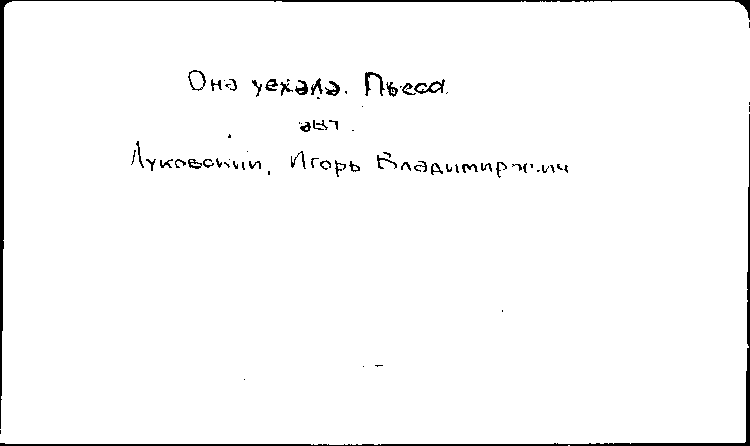 Она уехала. Пьеса.
авт.
Луковский, Игорь Владимирович